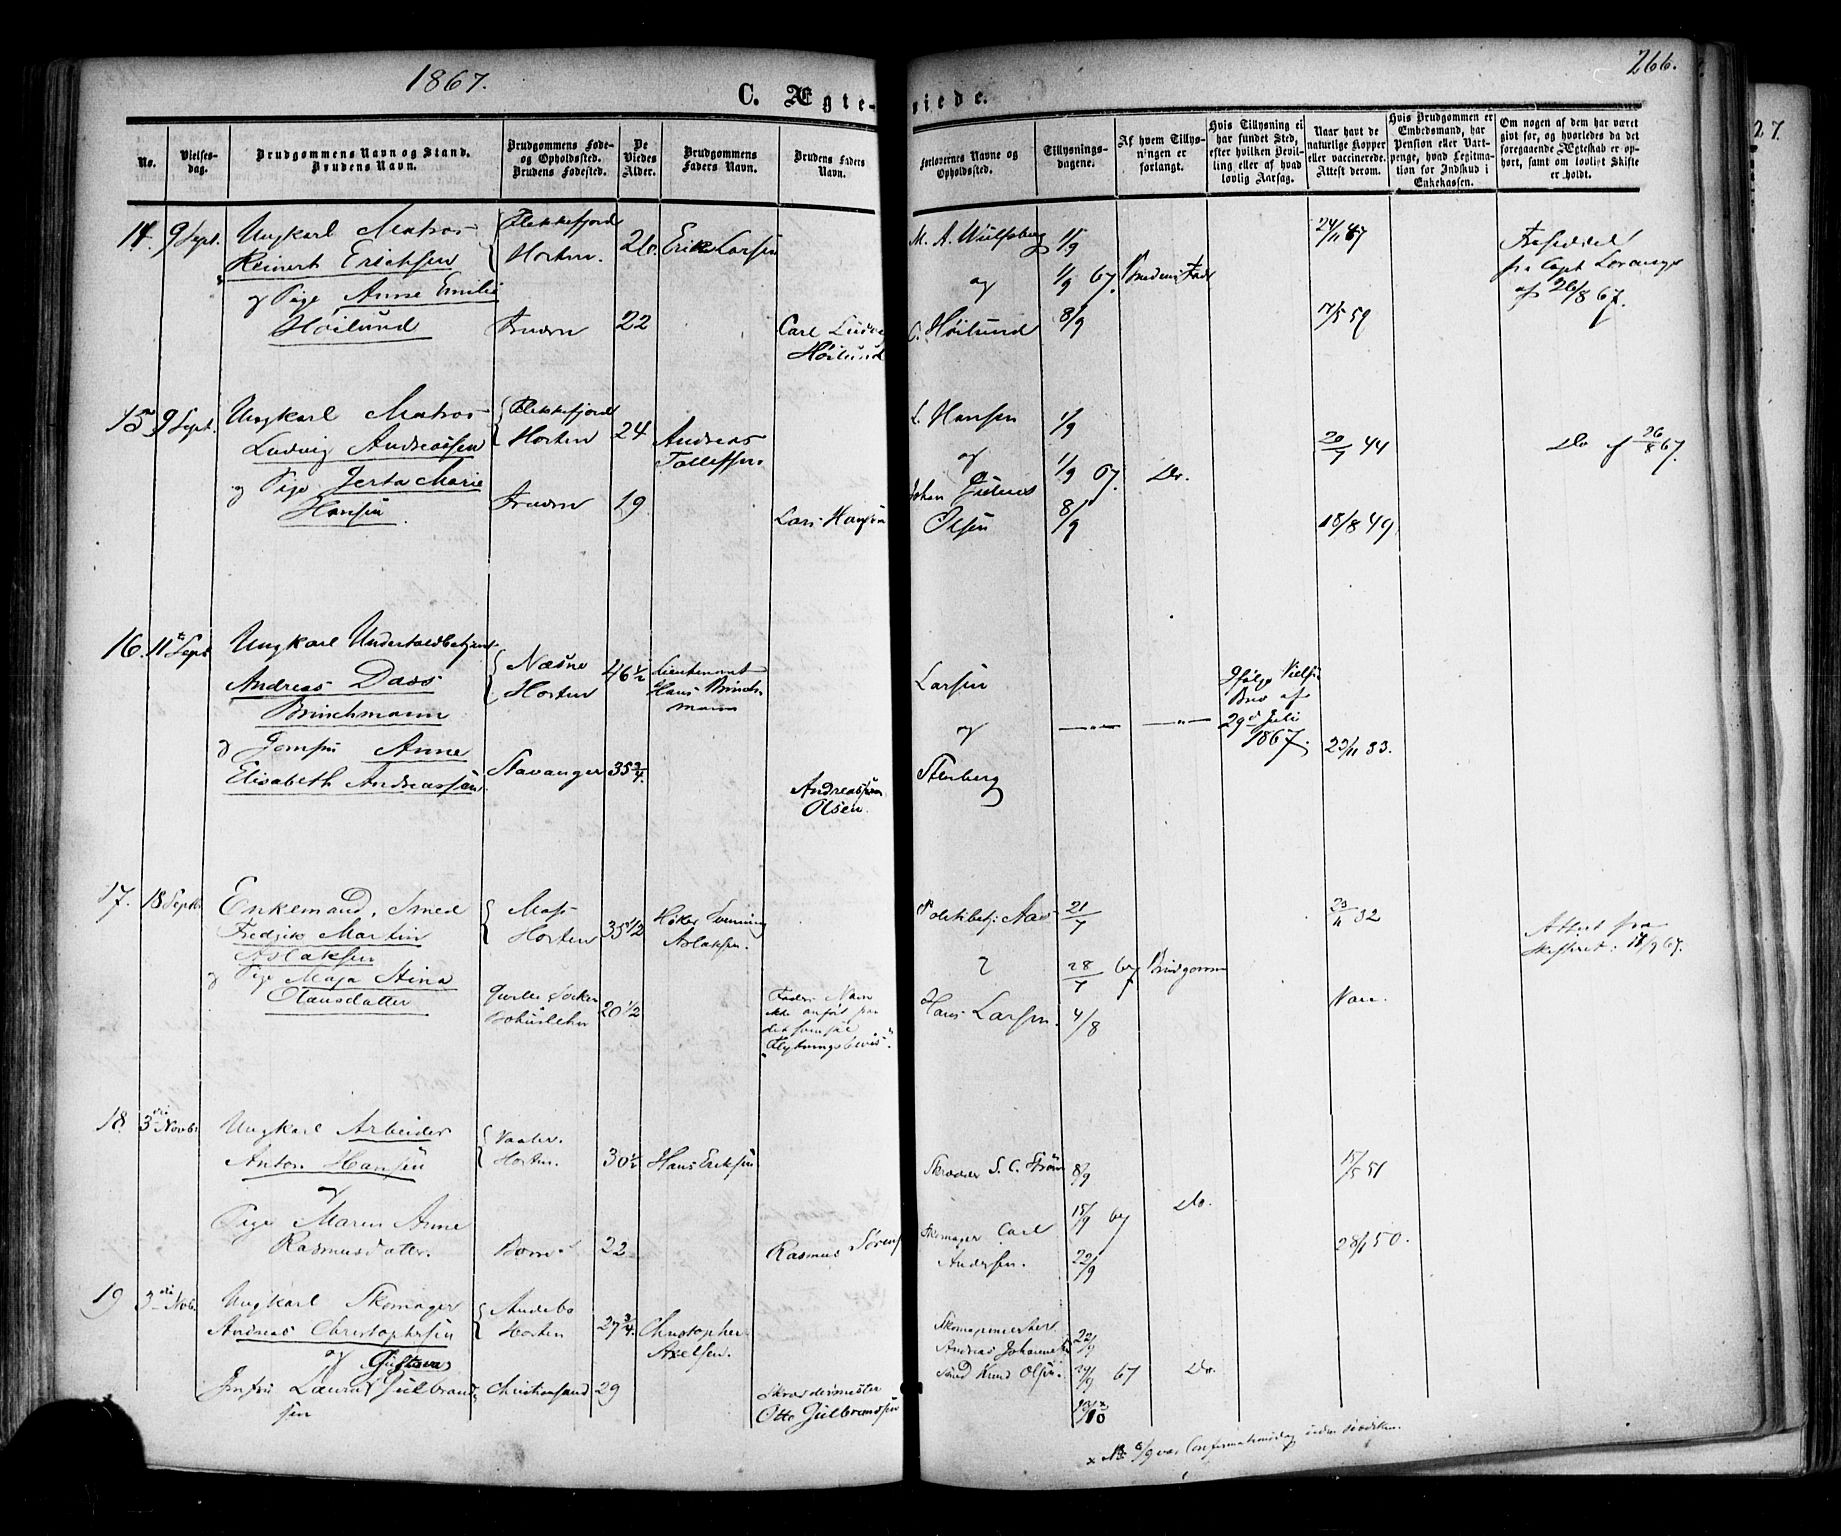 1867.
266.
C. Ægte-
viede.
No.
Vielses-
dag.
Brudgommens Navn og Stand.
Brudens Navn.
Brudgommens Føde-
og Opholdssted.
Brudens Fødested.
De
Viedes
Alder.
Brudgommens
Faders Navn.
Brudens Faders
Navn.
Forlovernes Navne og
Opholdssted.
Tillysnings-
dagene.
Af hvem Tillys-
ningen er
forlangt.
Hvis Tillysning ei
har fundet Sted,
efter hvilken Bevil-
ling eller af hvad
lovlig Aarsag.
Naar havt de
naturlige Kopper
eller vaccinerede.
Attest derom.
Hvis Brudgommen er
Embedsmand, har
Pension eller Vart-
penge, hvad Legitima-
tion for Indskud i
Enkekassen.
Om nogen af dem har været
gift før, og hvorledes da det
foregaaende Ægteskab er op-
hørt, samt om lovligt Skifte
er holdt.
14. 9 Sept.
Ungkarl Matros
Reinert Ericksen
og Pige Anne Emilie
Høilund
Flekkefjord
Horten.
Bruden
26.
22
Erik Larsen
Carl
Høilund
M. A. Wulfsberg
og
C. Høilund
1/9
1/9 67.
8/9
Brudens
24/11 47
17/5 59
Fraseddel
fra Capt
af 26/8 67.
15 9 Sept.
Ungkarl Matros
Ludvig Andreassen
og Pige Jerta Marie
Hansen
Flekkefjord
Horten
24
19
Andreas
Tollefsen
Lars Hansen
L. Hansen
og
Johan
Olsen
1/9
1/9 67.
8/9
Do.
20/7 44
18/8 49
Do af 26/8 67.
16. 11 Sept
Ungkarl
Andreas Dass
Brinchmann
og Jomfru Anne
Elisabeth Andreassen
Næsne
Horten
Stavanger
46 1/2
35 3/4.
Lieutenant
Hans Brinch-
mann
Andreas
Olsen.
Larsen
og
Stenberg
Ifølge
Brev af
29 Juli
1867.
23/11 33.
17. 18 Sept.
Enkemand, Smed
Fredrik Martin
Aslaksen
og Pige Maja Stina
Clausdatter
Moss
Horten
Bohuslehn
35 1/2
20 1/2
Svenning
Aslaksen.
Faders Navn
ikke anført paa
det
"Flytningsbevis".
Politibetj. Aas
Hans Larsen.
21/7
28/7 67
4/8
Brudgommen
23/11 32
Attest fra
Skifteret: 18/9 67.
18. 3 Novbr
Ungkarl Arbeider
Anton Hansen
og
Pige Maren Anne
Rasmusdatter.
Vaaler.
Horten.
Borre
30 1/2
22
Hans Eriksen
Rasmus
Skrædder S. C. Strøm
Skomager Carl
Andersen.
8/9
15/9 67
22/9
Do.
17/5 51
28/1 50.
19 3 Nov.
Ungkarl Skomager
Andreas Christophersen
og Gustava
Jomfru Laura Gulbrand-
sen
Andebo
Horten
Christiansand
27 3/4.
29
Christopher
Axelsen.
Skræddermester
Otto Gulbrandsen
Skomagermester
Andreas
Knud Olsen.
22/9
29/9 67
Do.
x NB 6/9 var Confirmationsdag